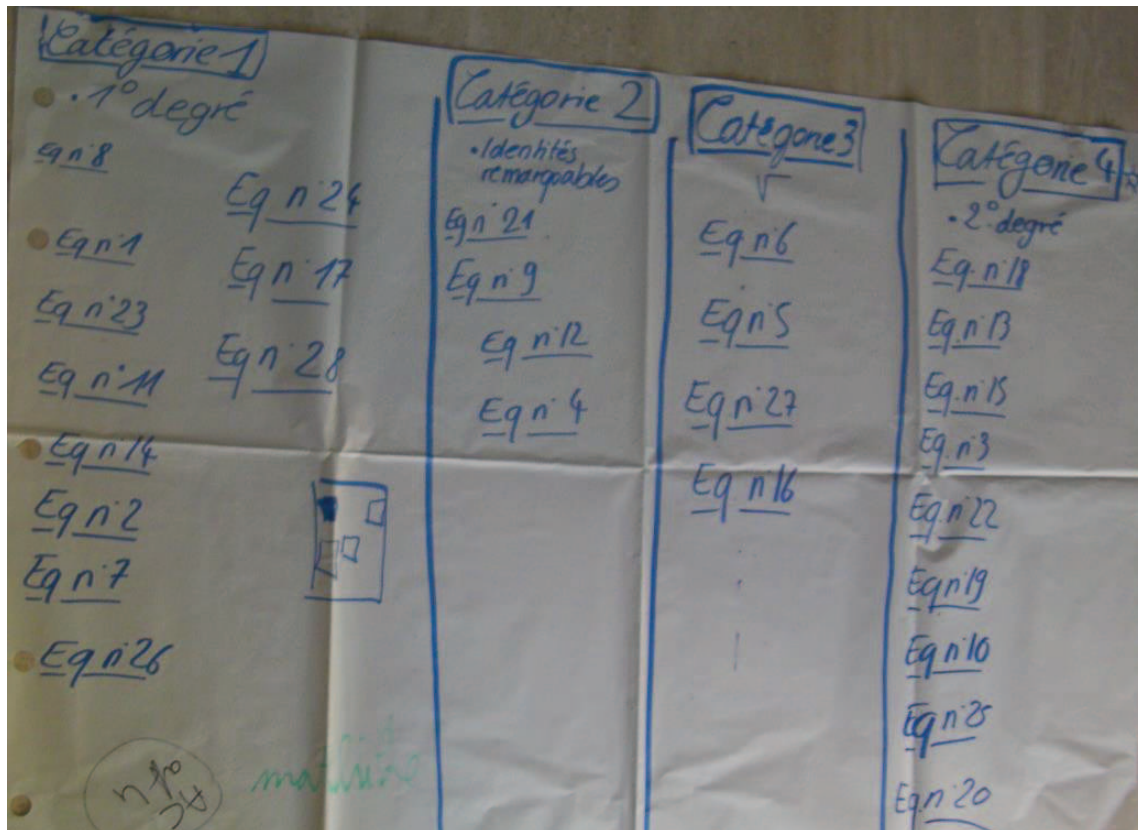 Catégorie 1
• 1° degré
Eq n°8
Eq n°24
Eq n°1
Eq n°17
Eq n°23
Eq n°28
Eq n°11
Eq n°14
Eq n°2
Eq n°7
Eq n°26
Catégorie 2
• Identités
remarquables
Eq n°21
Eq n°9
Eq n°12
Eq n°4
Catégorie 3
√
Eq n°6
Eq n°5
Eq n°27
Eq n°16
Catégorie 4
• 2° degré
Eq. n°18
Eq. n°13
Eq. n°15
Eq. n°3
Eq. n°22
Eq n°19
Eq n°10
Eq n°25
Eq. n°20